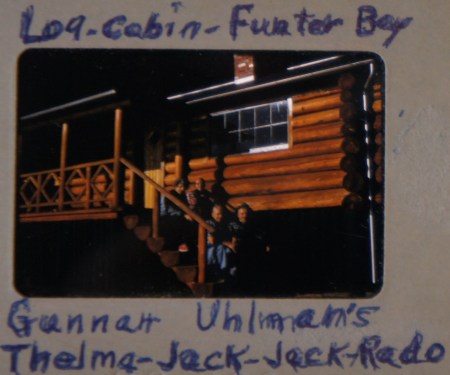 Log-Cabin-Funter Bay
Gunnar Uhlman's
Thelma-Jack-Jack-Rado